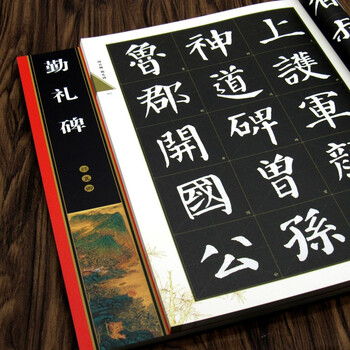 勤礼碑
上護軍顏
神道碑曾孫
魯郡開國公